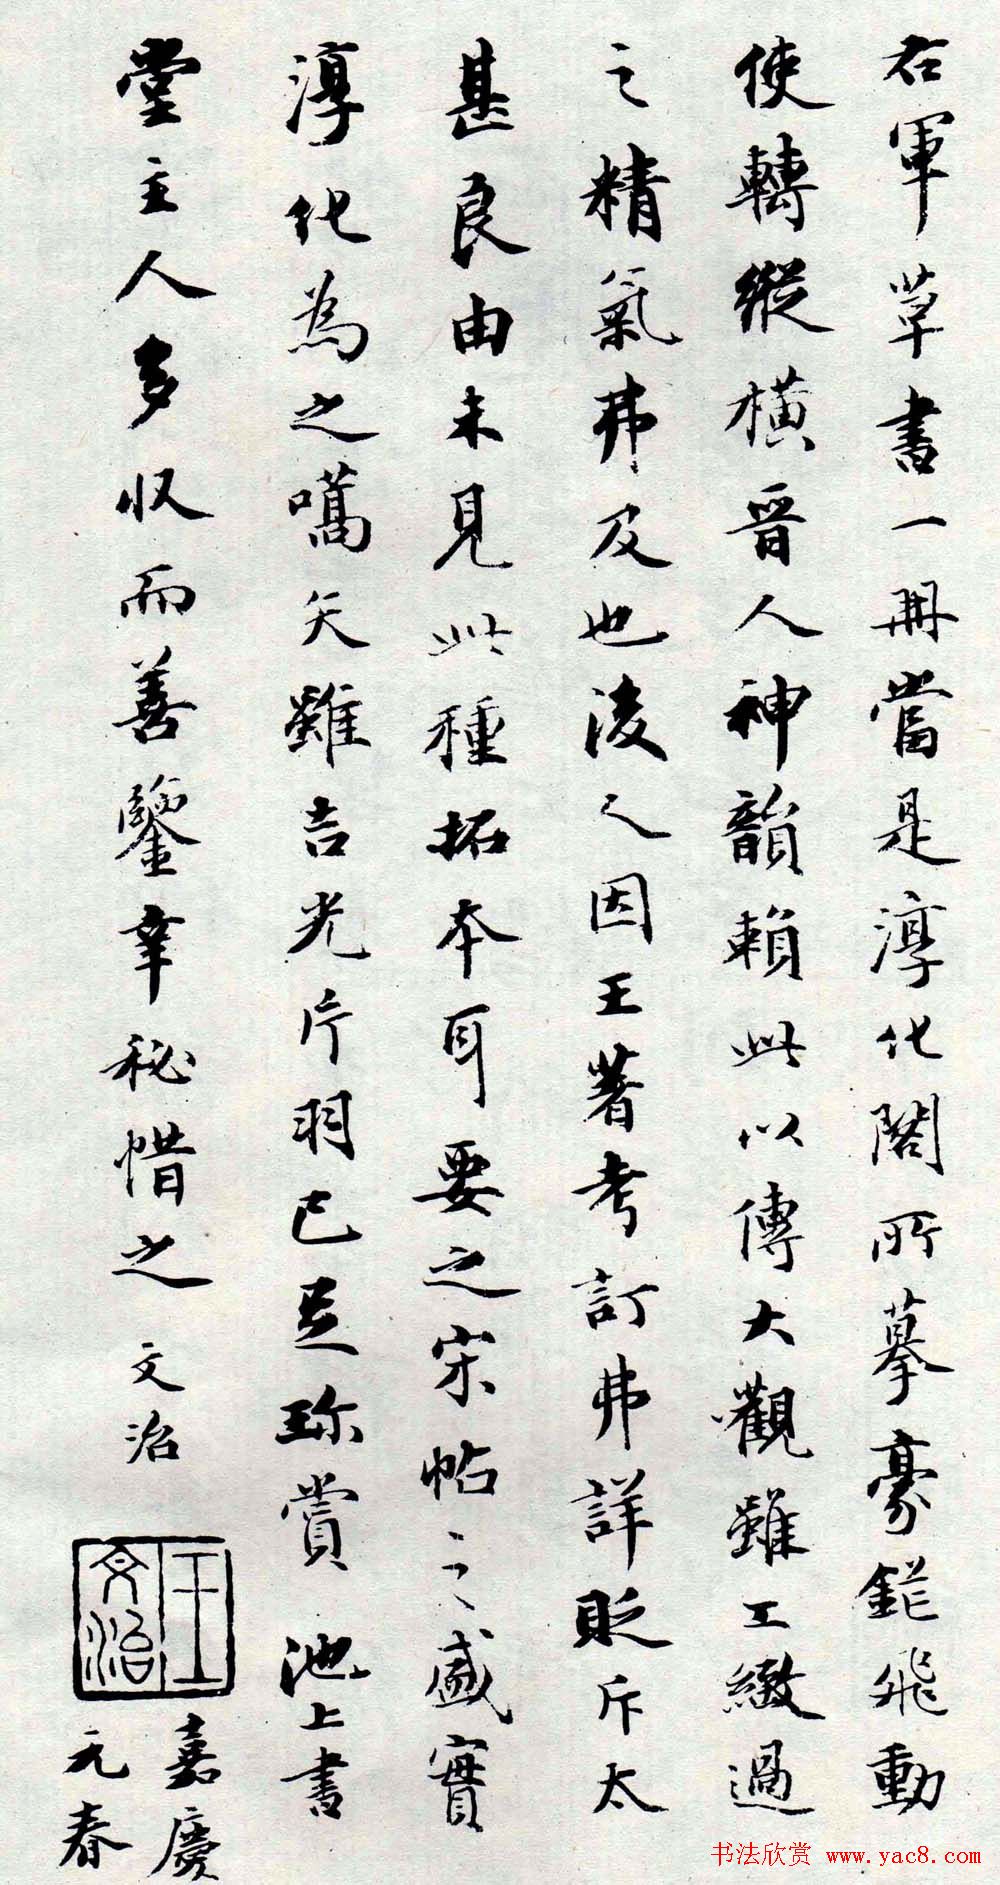 右軍草書一冊當是淳化閣所摹豪鋩飛動
使轉縱橫晉人神韻賴此以傳大觀雖工緻過
之精氣弗及也後之人因王著考訂弗詳貶斥太
甚良由未見此種拓本耳要之宋帖之盛實
淳化為之嚆矢雖吉光片羽已足珎賞池上書
堂主人多收而善鑒幸秘惜之 文治
王文治
嘉慶
元春
书法欣赏 www.yac8.com